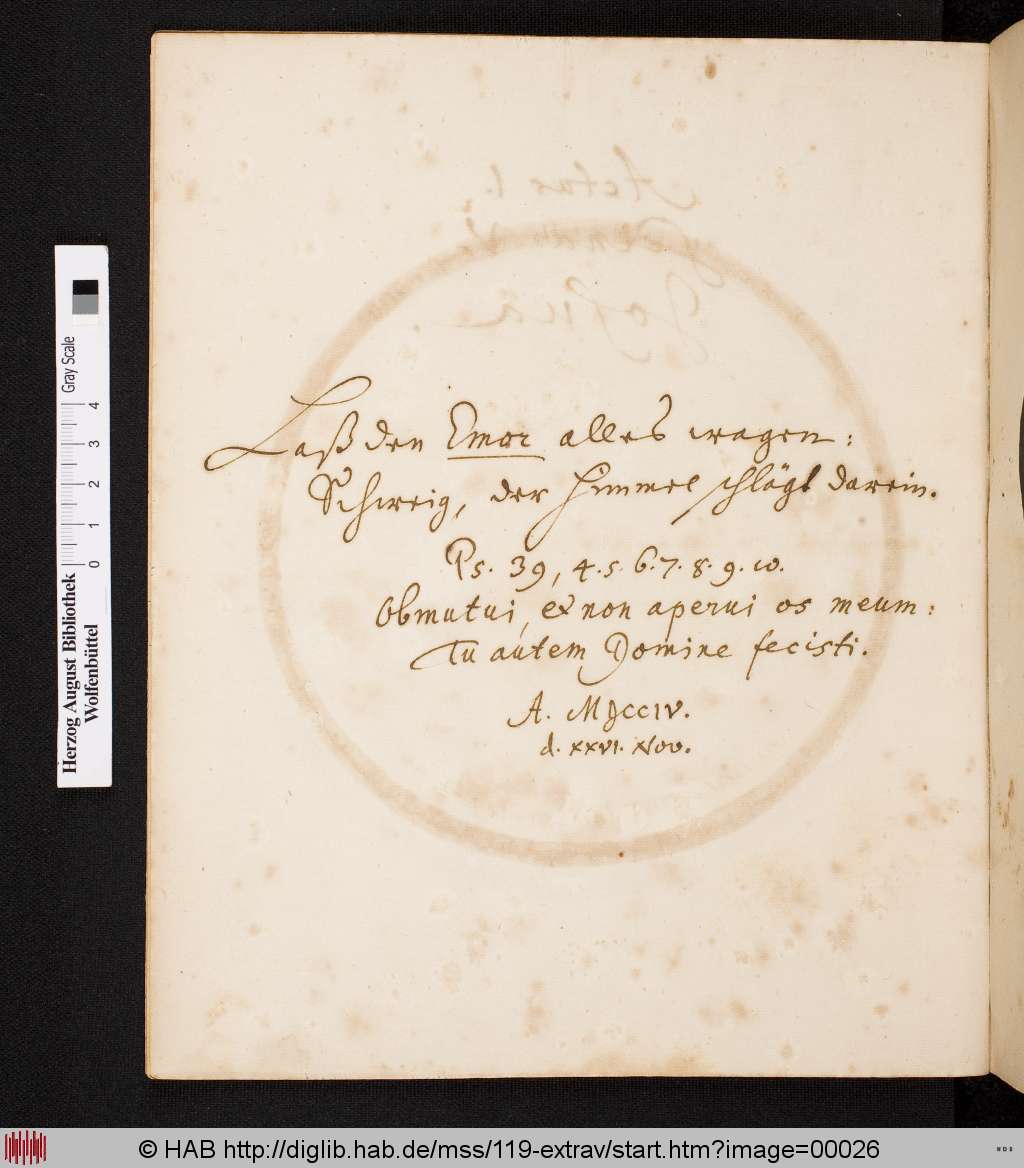 Laß den Emor alles wagen:
Schweig, der Himmel schlägt darein.
Ps. 39, 4. 5. 6. 7. 8. 9. 10.
Obmutui, et non aperui os meum:
Tu autem Domine fecisti.
A. MDCCIV.
d. XXVI. Nov.
Herzog August Bibliothek
Wolfenbüttel
0 1 2 3 4
Gray Scale
© HAB http://diglib.hab.de/mss/119-extrav/start.htm?image=00026